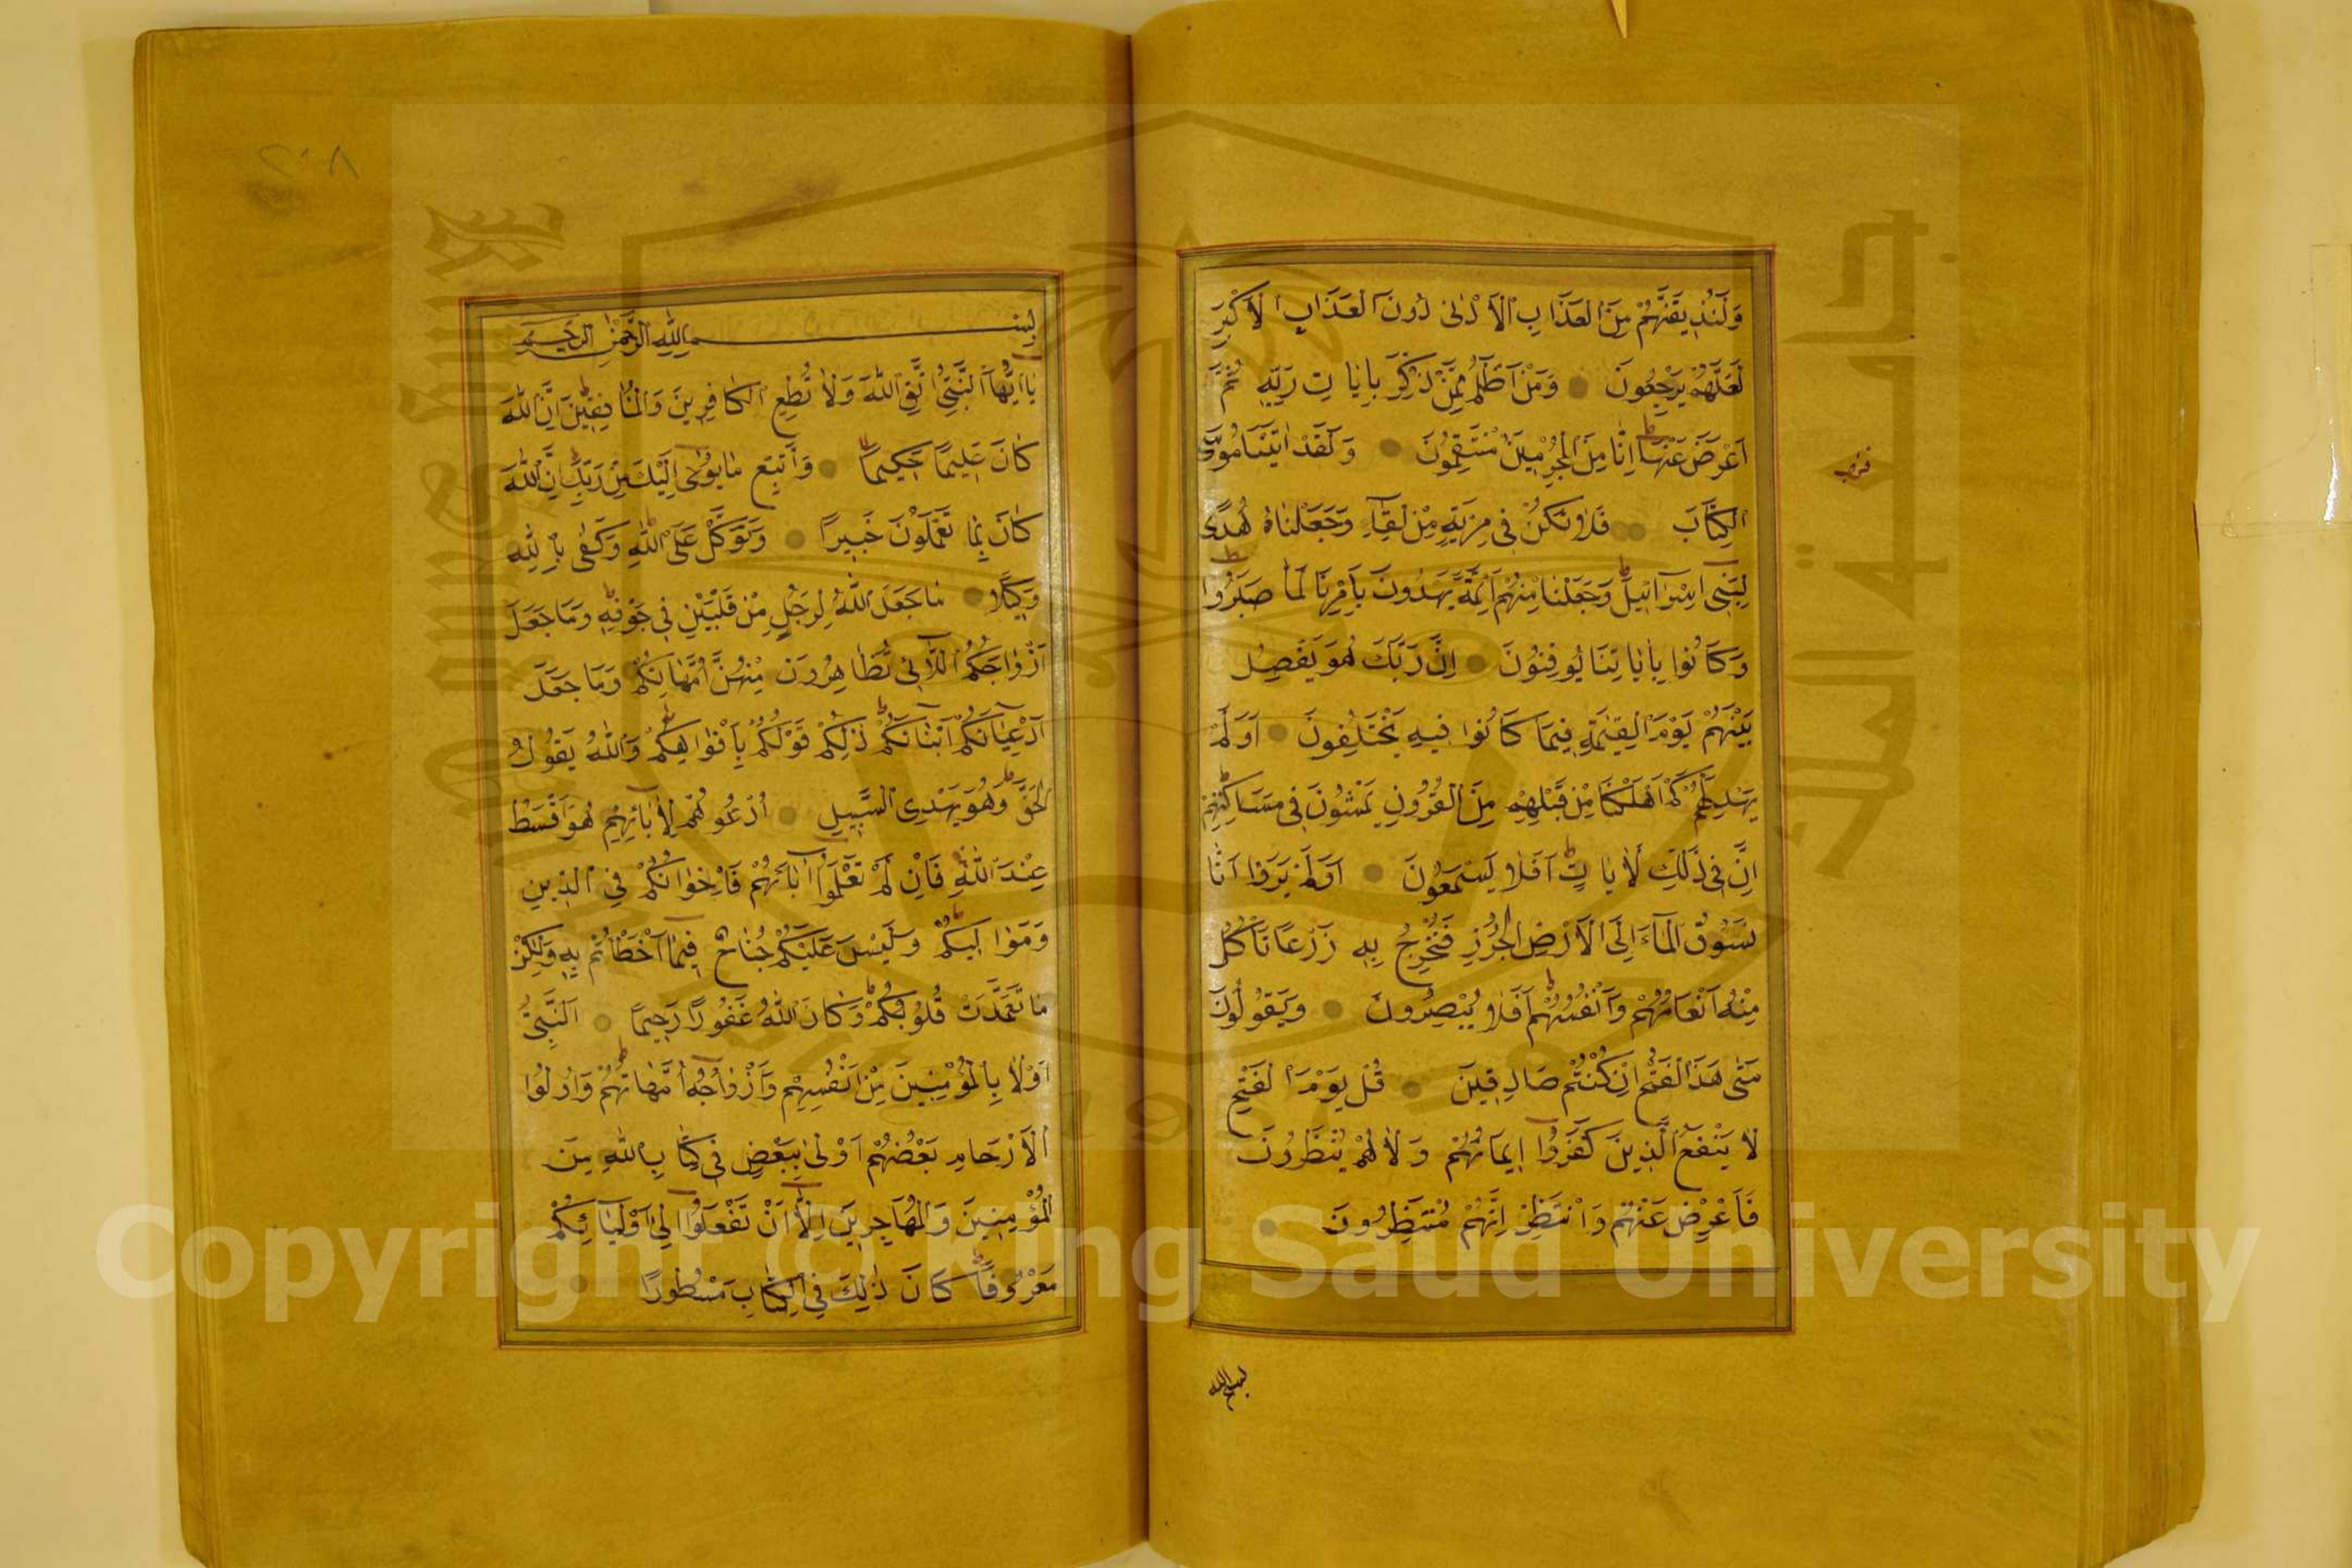 وَلَنُذِيقَنَّهُمْ مِنَ الْعَذَابِ الْاَدْنٰى دُونَ الْعَذَابِ الْاَكْبَرِ
لَعَلَّهُمْ يَرْجِعُونَ وَمَنْ اَظْلَمُ مِمَّنْ ذُكِّرَ بِاٰيَاتِ رَبِّهِ ثُمَّ
اَعْرَضَ عَنْهَا اِنَّا مِنَ الْمُجْرِمِينَ مُنْتَقِمُونَ وَلَقَدْ اٰتَيْنَا مُوسَى
الْكِتَابَ فَلَا تَكُنْ فِى مِرْيَةٍ مِنْ لِقَآئِهِ وَجَعَلْنَاهُ هُدًى
لِبَنِى اِسْرَآئِيلَ وَجَعَلْنَا مِنْهُمْ اَئِمَّةً يَهْدُونَ بِاَمْرِنَا لَمَّا صَبَرُوا
وَكَانُوا بِاٰيَاتِنَا يُوقِنُونَ اِنَّ رَبَّكَ هُوَ يَفْصِلُ
بَيْنَهُمْ يَوْمَ الْقِيٰمَةِ فِيمَا كَانُوا فِيهِ يَخْتَلِفُونَ اَوَلَمْ
يَهْدِ لَهُمْ كَمْ اَهْلَكْنَا مِنْ قَبْلِهِمْ مِنَ الْقُرُونِ يَمْشُونَ فِى مَسَاكِنِهِمْ
اِنَّ فِى ذٰلِكَ لَاٰيَاتٍ اَفَلَا يَسْمَعُونَ اَوَلَمْ يَرَوْا اَنَّا
نَسُوقُ الْمَآءَ اِلَى الْاَرْضِ الْجُرُزِ فَنُخْرِجُ بِهِ زَرْعًا تَاْكُلُ
مِنْهُ اَنْعَامُهُمْ وَاَنْفُسُهُمْ اَفَلَا يُبْصِرُونَ وَيَقُولُونَ
مَتٰى هٰذَا الْفَتْحُ اِنْ كُنْتُمْ صَادِقِينَ قُلْ يَوْمَ الْفَتْحِ
لَا يَنْفَعُ الَّذِينَ كَفَرُوا اِيمَانُهُمْ وَلَا هُمْ يُنْظَرُونَ
فَاَعْرِضْ عَنْهُمْ وَانْتَظِرْ اِنَّهُمْ مُنْتَظِرُونَ
بسم الله
٢٠٨
بِسْمِ اللّٰهِ الرَّحْمٰنِ الرَّحِيمِ
يَا اَيُّهَا النَّبِىُّ اتَّقِ اللّٰهَ وَلَا تُطِعِ الْكَافِرِينَ وَالْمُنَافِقِينَ اِنَّ اللّٰهَ
كَانَ عَلِيمًا حَكِيمًا وَاتَّبِعْ مَا يُوحٰى اِلَيْكَ مِنْ رَبِّكَ اِنَّ اللّٰهَ
كَانَ بِمَا تَعْمَلُونَ خَبِيرًا وَتَوَكَّلْ عَلَى اللّٰهِ وَكَفٰى بِاللّٰهِ
وَكِيلًا مَا جَعَلَ اللّٰهُ لِرَجُلٍ مِنْ قَلْبَيْنِ فِى جَوْفِهِ وَمَا جَعَلَ
اَزْوَاجَكُمُ اللَّآئِى تُظَاهِرُونَ مِنْهُنَّ اُمَّهَاتِكُمْ وَمَا جَعَلَ
اَدْعِيَآءَكُمْ اَبْنَآءَكُمْ ذٰلِكُمْ قَوْلُكُمْ بِاَفْوَاهِكُمْ وَاللّٰهُ يَقُولُ
الْحَقَّ وَهُوَ يَهْدِى السَّبِيلَ اُدْعُوهُمْ لِاٰبَآئِهِمْ هُوَ اَقْسَطُ
عِنْدَ اللّٰهِ فَاِنْ لَمْ تَعْلَمُوا اٰبَآءَهُمْ فَاِخْوَانُكُمْ فِى الدِّينِ
وَمَوَالِيكُمْ وَلَيْسَ عَلَيْكُمْ جُنَاحٌ فِيمَا اَخْطَاْتُمْ بِهِ وَلٰكِنْ
مَا تَعَمَّدَتْ قُلُوبُكُمْ وَكَانَ اللّٰهُ غَفُورًا رَحِيمًا اَلنَّبِىُّ
اَوْلٰى بِالْمُؤْمِنِينَ مِنْ اَنْفُسِهِمْ وَاَزْوَاجُهُ اُمَّهَاتُهُمْ وَاُولُوا
الْاَرْحَامِ بَعْضُهُمْ اَوْلٰى بِبَعْضٍ فِى كِتَابِ اللّٰهِ مِنَ
الْمُؤْمِنِينَ وَالْمُهَاجِرِينَ اِلَّا اَنْ تَفْعَلُوا اِلٰى اَوْلِيَآئِكُمْ
مَعْرُوفًا كَانَ ذٰلِكَ فِى الْكِتَابِ مَسْطُورًا
Copyright © King Saud University